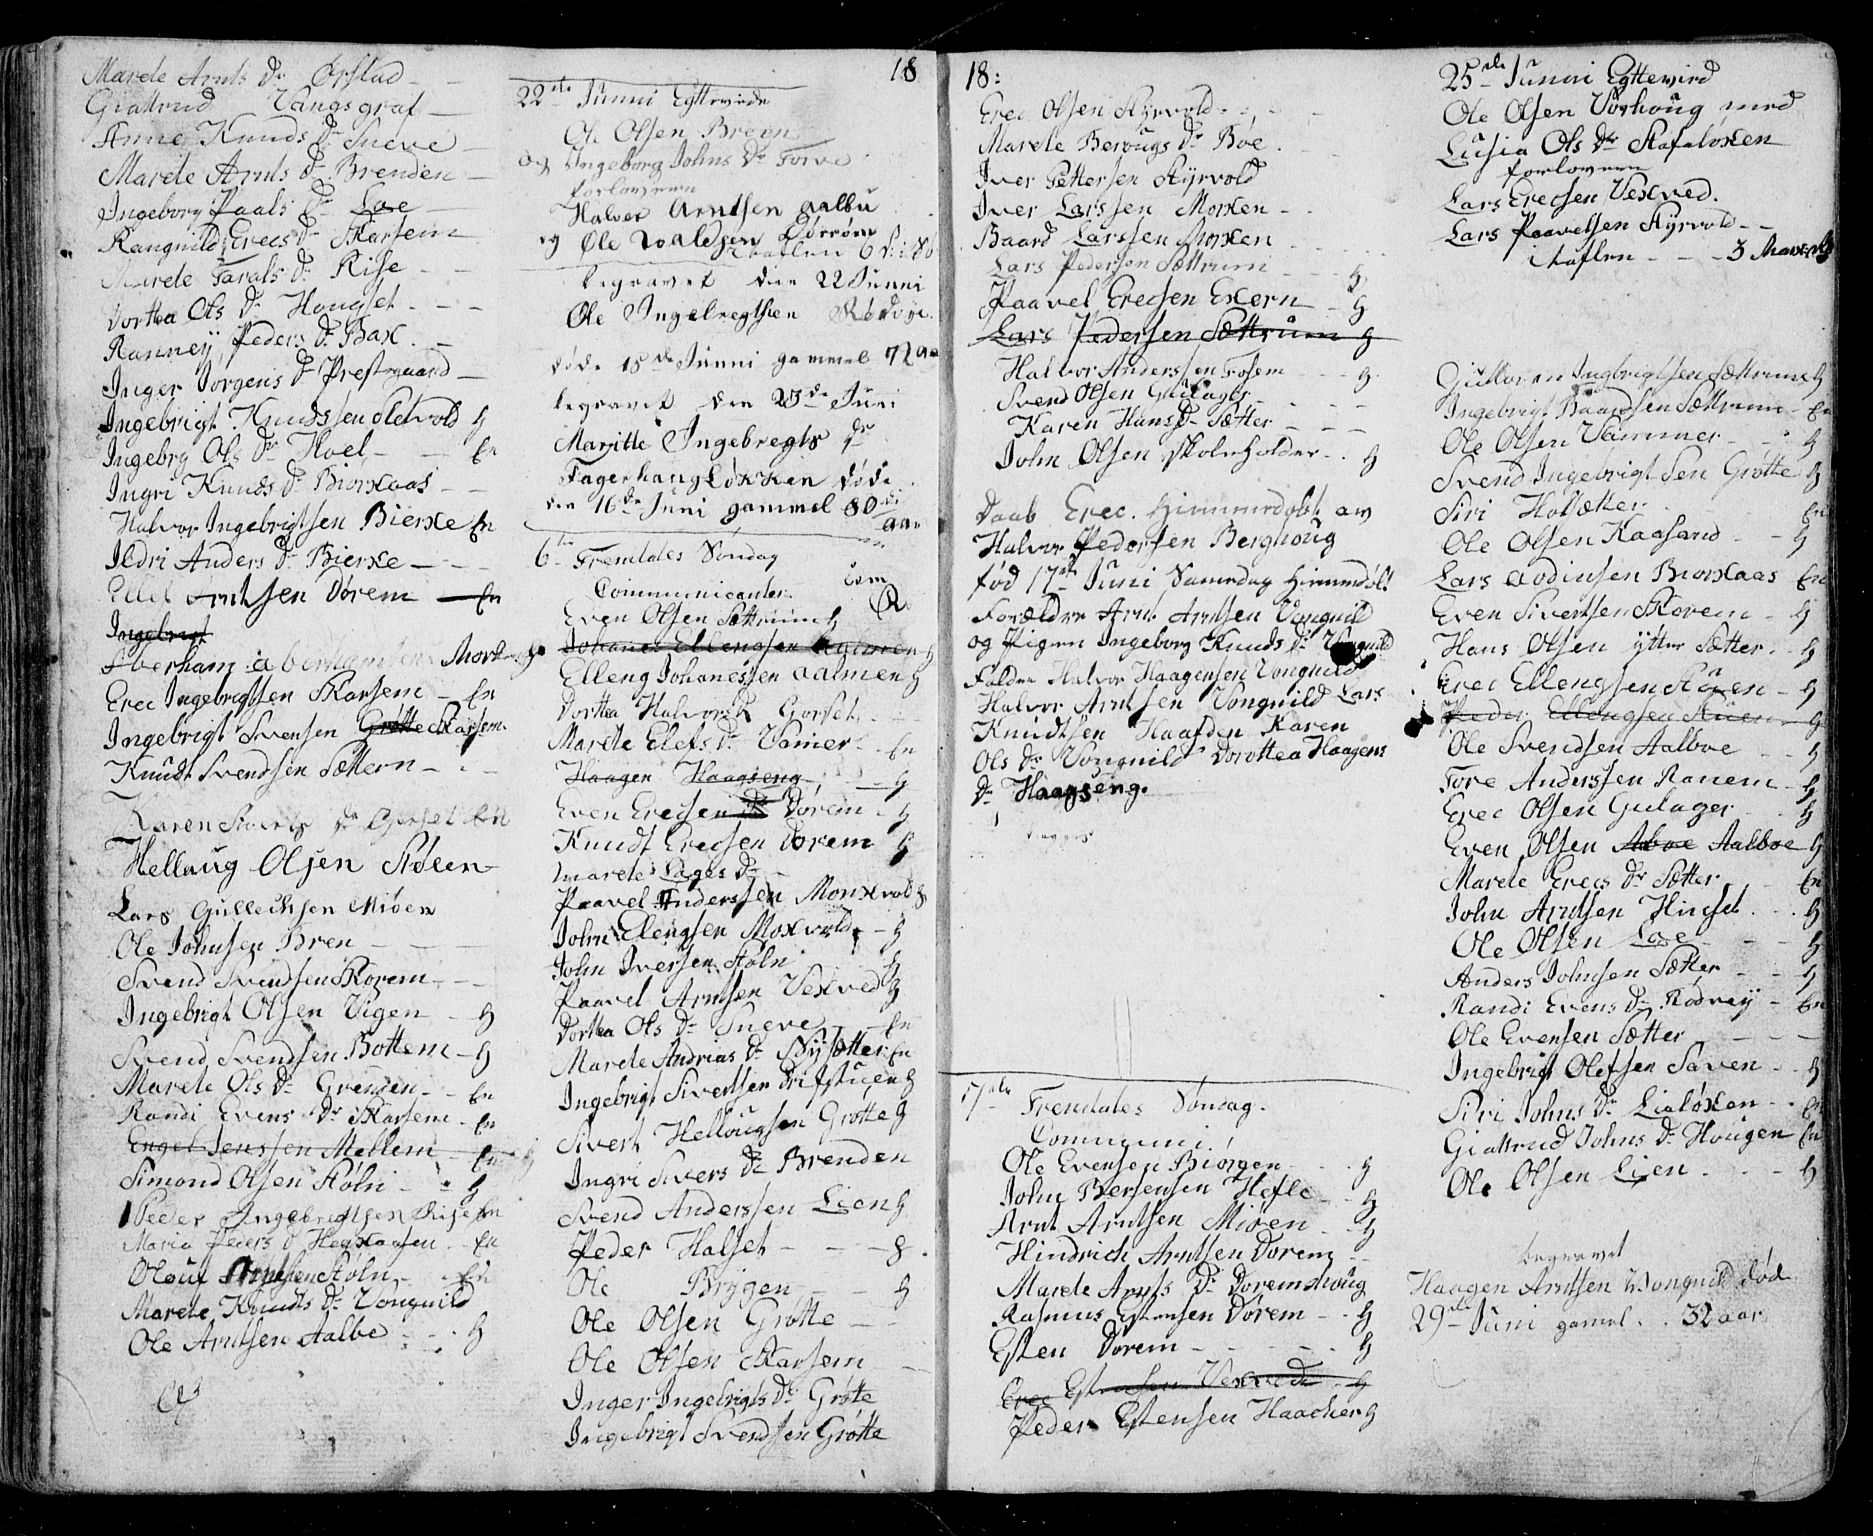 Marete Arnts Dr Ørstad
Giattrud Vangsgraf
Anne Knuds Dr Sneve
Marete Arnts Dr Brenden
Ingeborg Paals Dr Loe
Rangnild Erecs Dr Skarsem
Marete Tarals Dr Rise
Dorthea Ols Dr Hougset
Ranney Peders Dr Bax
Inger Jorgens Dr Prestgaard
Ingebrigt Knudssen Sletvold
Ingebrg Ols Dr Hoel En
Ingri Knuds Dr Biorxaas
Halvor Ingebrigtsen Bierxe En
Jldri Anders Dr Bierxe
Ellef Arntsen Dørem En
Ingebrigt
Aberham aberhamsen
Erec Ingebrigtsen Skarsem En
Ingebrigt Svensen Grøtte Skarsem
Knudt Svendsen Sættern
Karen Siverts Dr En
Hellaug Olsen Støen
Lars Gullechsen Miøen
Ole Johnsen Bren
Svend Svendsen Skorem
Ingebrigt Olsen Vigen
Svend Svendsen Bottem
Marete Ols Dr Grenden En
Randi Evens Dr Skarsem En
Engel Jenssen Mellem En
Simond Olsen Støln
Peder Ingebregtsen Rise En
Maria Peders D En
Olouf Arntsen Støln En
Marete Knudts Dr Vongnild
Ole Arntsen Aalbo
18
22de Junni Egttevirde
Ole Olsen Breen
og Ingeborg Johns Dr Torve
forlovern
Halvor Arntsen aalbu
og Ole
begravet den 22 Junni
Ole Ingebregtsen
døde 18de Junni gammel 72 aa
begravet den 23de Juni
Maritte Ingebregts dr
Fagerhaugløkken døde
den 16de Juni gammel 80
aar
6te Tremtales Søndag
Communicanter
Even Olsen Sættrum
Johanes Ellengsen
Elleng Johanessen aalmen
Dortea Halvors D Gorset
Marete Elefs Dr Vamer En
Haagen Haagseng
Even Erecsen Dr Dørem
Knudt Erecsen Dorem
Marete Lages Dr
Paavel Anderssen Monxvold
John Elengsen Moxvold
John Iversen Støln
Paavel Arntsen Vexved
Dorthea Ols Dr Sneve En
Marete Andrias Dr Nysætter En
Ingebrigt Sivertsen Drifstuen
Sivert Hellougsen Grøtte
Ingri Sivers Dr Brenden
Svend Anderssen Lien
Peder Halset
Ole Brygen
Ole Olsen Grøtte
Ole Olsen Skarsem
Inger Ingebrigts Dr Grøtte
Ingebrigt Svendsen Grøtte
18:
Erec Olsen Styrvold
Marete Berougs Dr Boe
Iver Pettersen Styrvold
Iver Larssen Morxen
Baard Larssen Morxen
Lars Pedersen Sættrum
Paavel Erecsen Exern
Lars Pedersen Sættrum
Halvor Anderssen Fosem
Svend Olsen Gulager
Karen Hans Dr Sætter
John Olsen skoleholder
Daab Erec. Himmedøbt av
Halvor Pedersen Berghoug
fød 17de Juni Samedag Himmedøbt
Forældre Arnt Arntsen Vongnild
og Pigen Ingeborg Knuds Dr Vongnild
Fadder Halvor Haagensen Vongnild
Halvor Arntsen Vongnild Lars
Knudtsen Haafden Karen
Ols Dr Vongnild Dorottea Haagens
Dr Haagseng.
17de Tremtales Søndag.
Communi
Ole Evensen Biørgen
John Bersensen Hefle
Arnt Arntsen Miøen
Hindrich Arntsen Dorem
Marete Arnts Dr Doremshoug
Rasmus Estensen Dorem
Esten Dorem
Erec Estensen Vexvede
Peder Estensen Haacher
25de Junni Egttevird
Ole Olsen Vorhoug med
Lusia Ols Dr Stafaloxen
forlovern
Lars Erecsen Vexved.
Lars Paavelsen Styrvold
3
Gulloren Ingbrigtsen Sættrum
Ingebrigt Baardsen Sættrum En
Ole Olsen Vammer
Svend Ingebrigtsen Grøtte
Siri Halsætter En
Ole Olsen Kaasand
Lars Aodinsen Biorxaas En
Even Sivertsen Skorem
Hans Olsen ytter Sætter
Erec Ellengsen Stuen
Peder Ellengsen Stuen
Ole Svendsen Aalboe
Tore Anderssen Ranem
Erec Olsen Gulager
Even Olsen Aboe Aalboe
Marete Erecs Dr Sætter En
John Arntsen Hinset
Ole Olsen Loe
Anders Johnsen Sætter
Randi Evens Dr Rødvey En
Ole Evensen Sætter
Ingebrigt Olefsen Saven
Siri Johns Dr Lialøxen En
Giattrud Johns Dr Hougen En
Ole Olsen Lien
begravet
Haagen Arntsen Vongnild død
29de Juni gamel. 32 aar